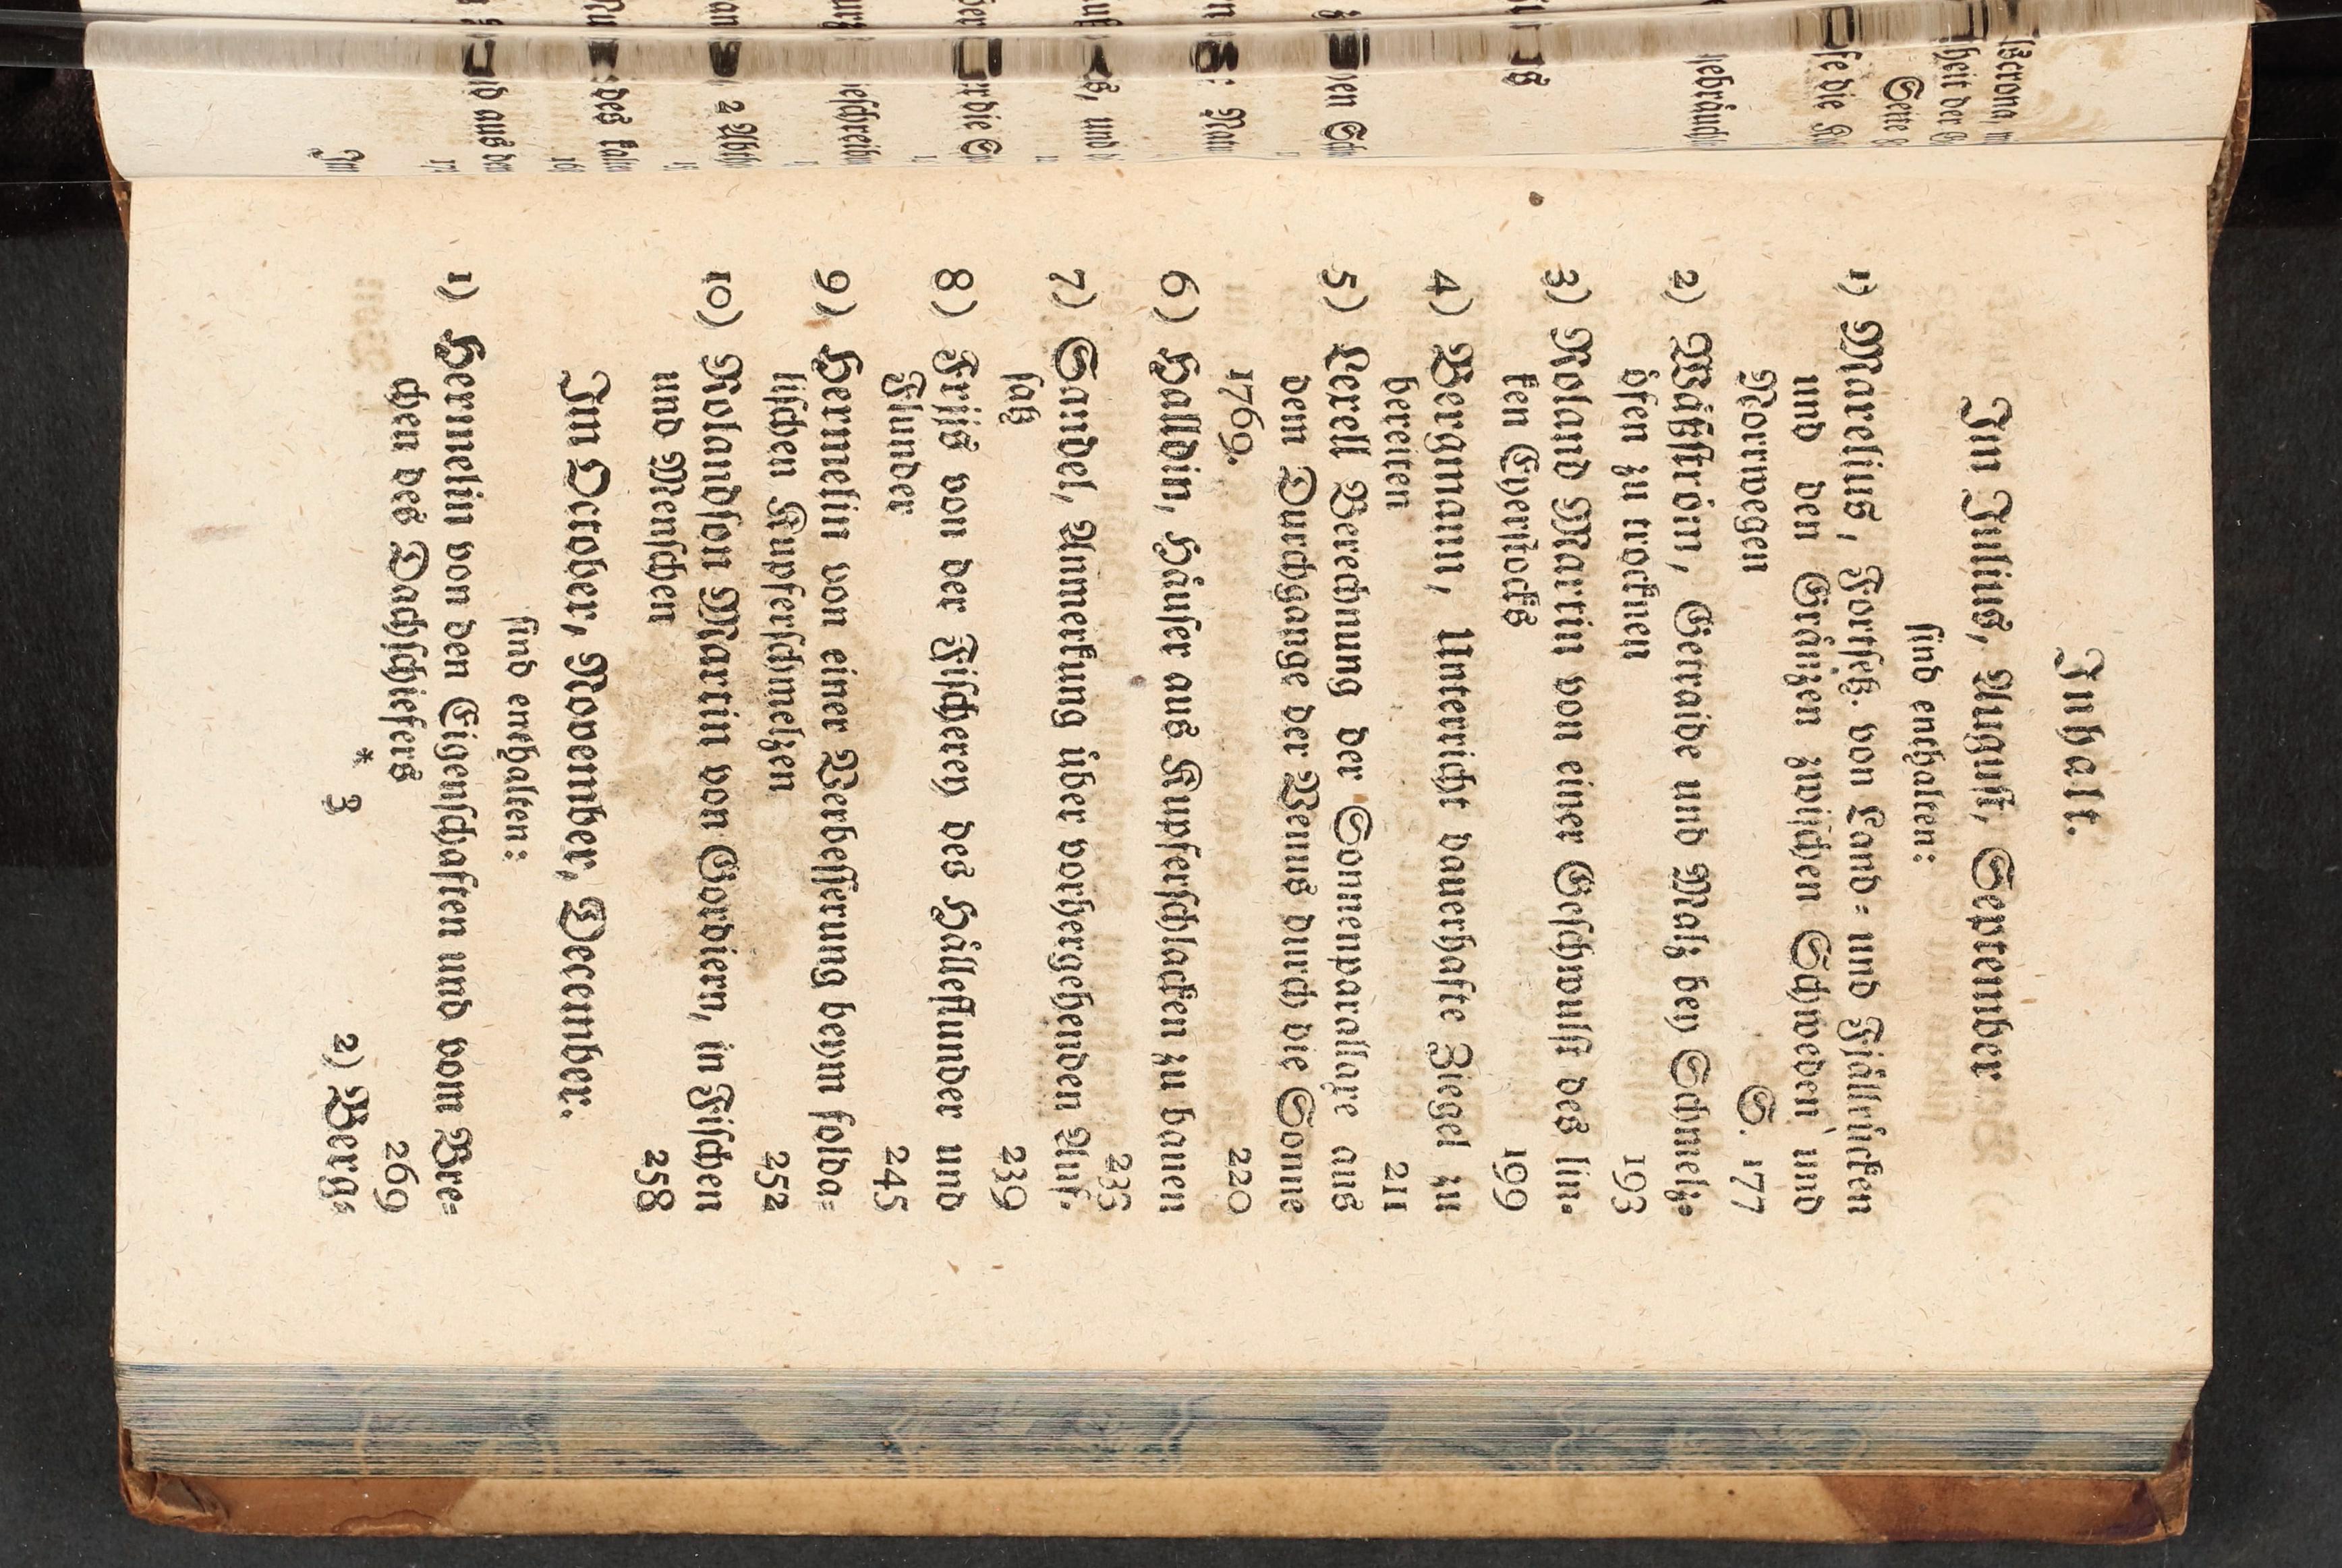 Inhalt.
Im Julius, August, September
sind enthalten:
1) Marelius, Fortsetz. von Land- und Fjällrücken
und den Gränzen zwischen Schweden und
Norrwegen S. 177
2) Wäßström, Getraide und Malz bey Schmelz-
öfen zu trocknen 193
3) Roland Martin von einer Geschwulst des lin-
ken Eyerstocks 199
4) Bergmann, Unterricht dauerhafte Ziegel zu
bereiten 211
5) Lexell Berechnung der Sonnenparallaxe aus
dem Durchgange der Venus durch die Sonne
1769. 220
6) Halldin, Häuser aus Kupferschlacken zu bauen
233
7) Sandel, Anmerkung über vorhergehenden Auf-
satz 239
8) Frisß von der Fischerey des Hälleflunder und
Flunder 245
9) Hermelin von einer Verbesserung beym solda-
lischen Kupferschmelzen 252
10) Rolandson Martin von Gordiern, in Fischen
und Menschen 258
Im October, November, December.
sind enthalten:
1) Hermelin von den Eigenschaften und vom Bre-
chen des Dachschiefers 269
* 3
2) Berg-